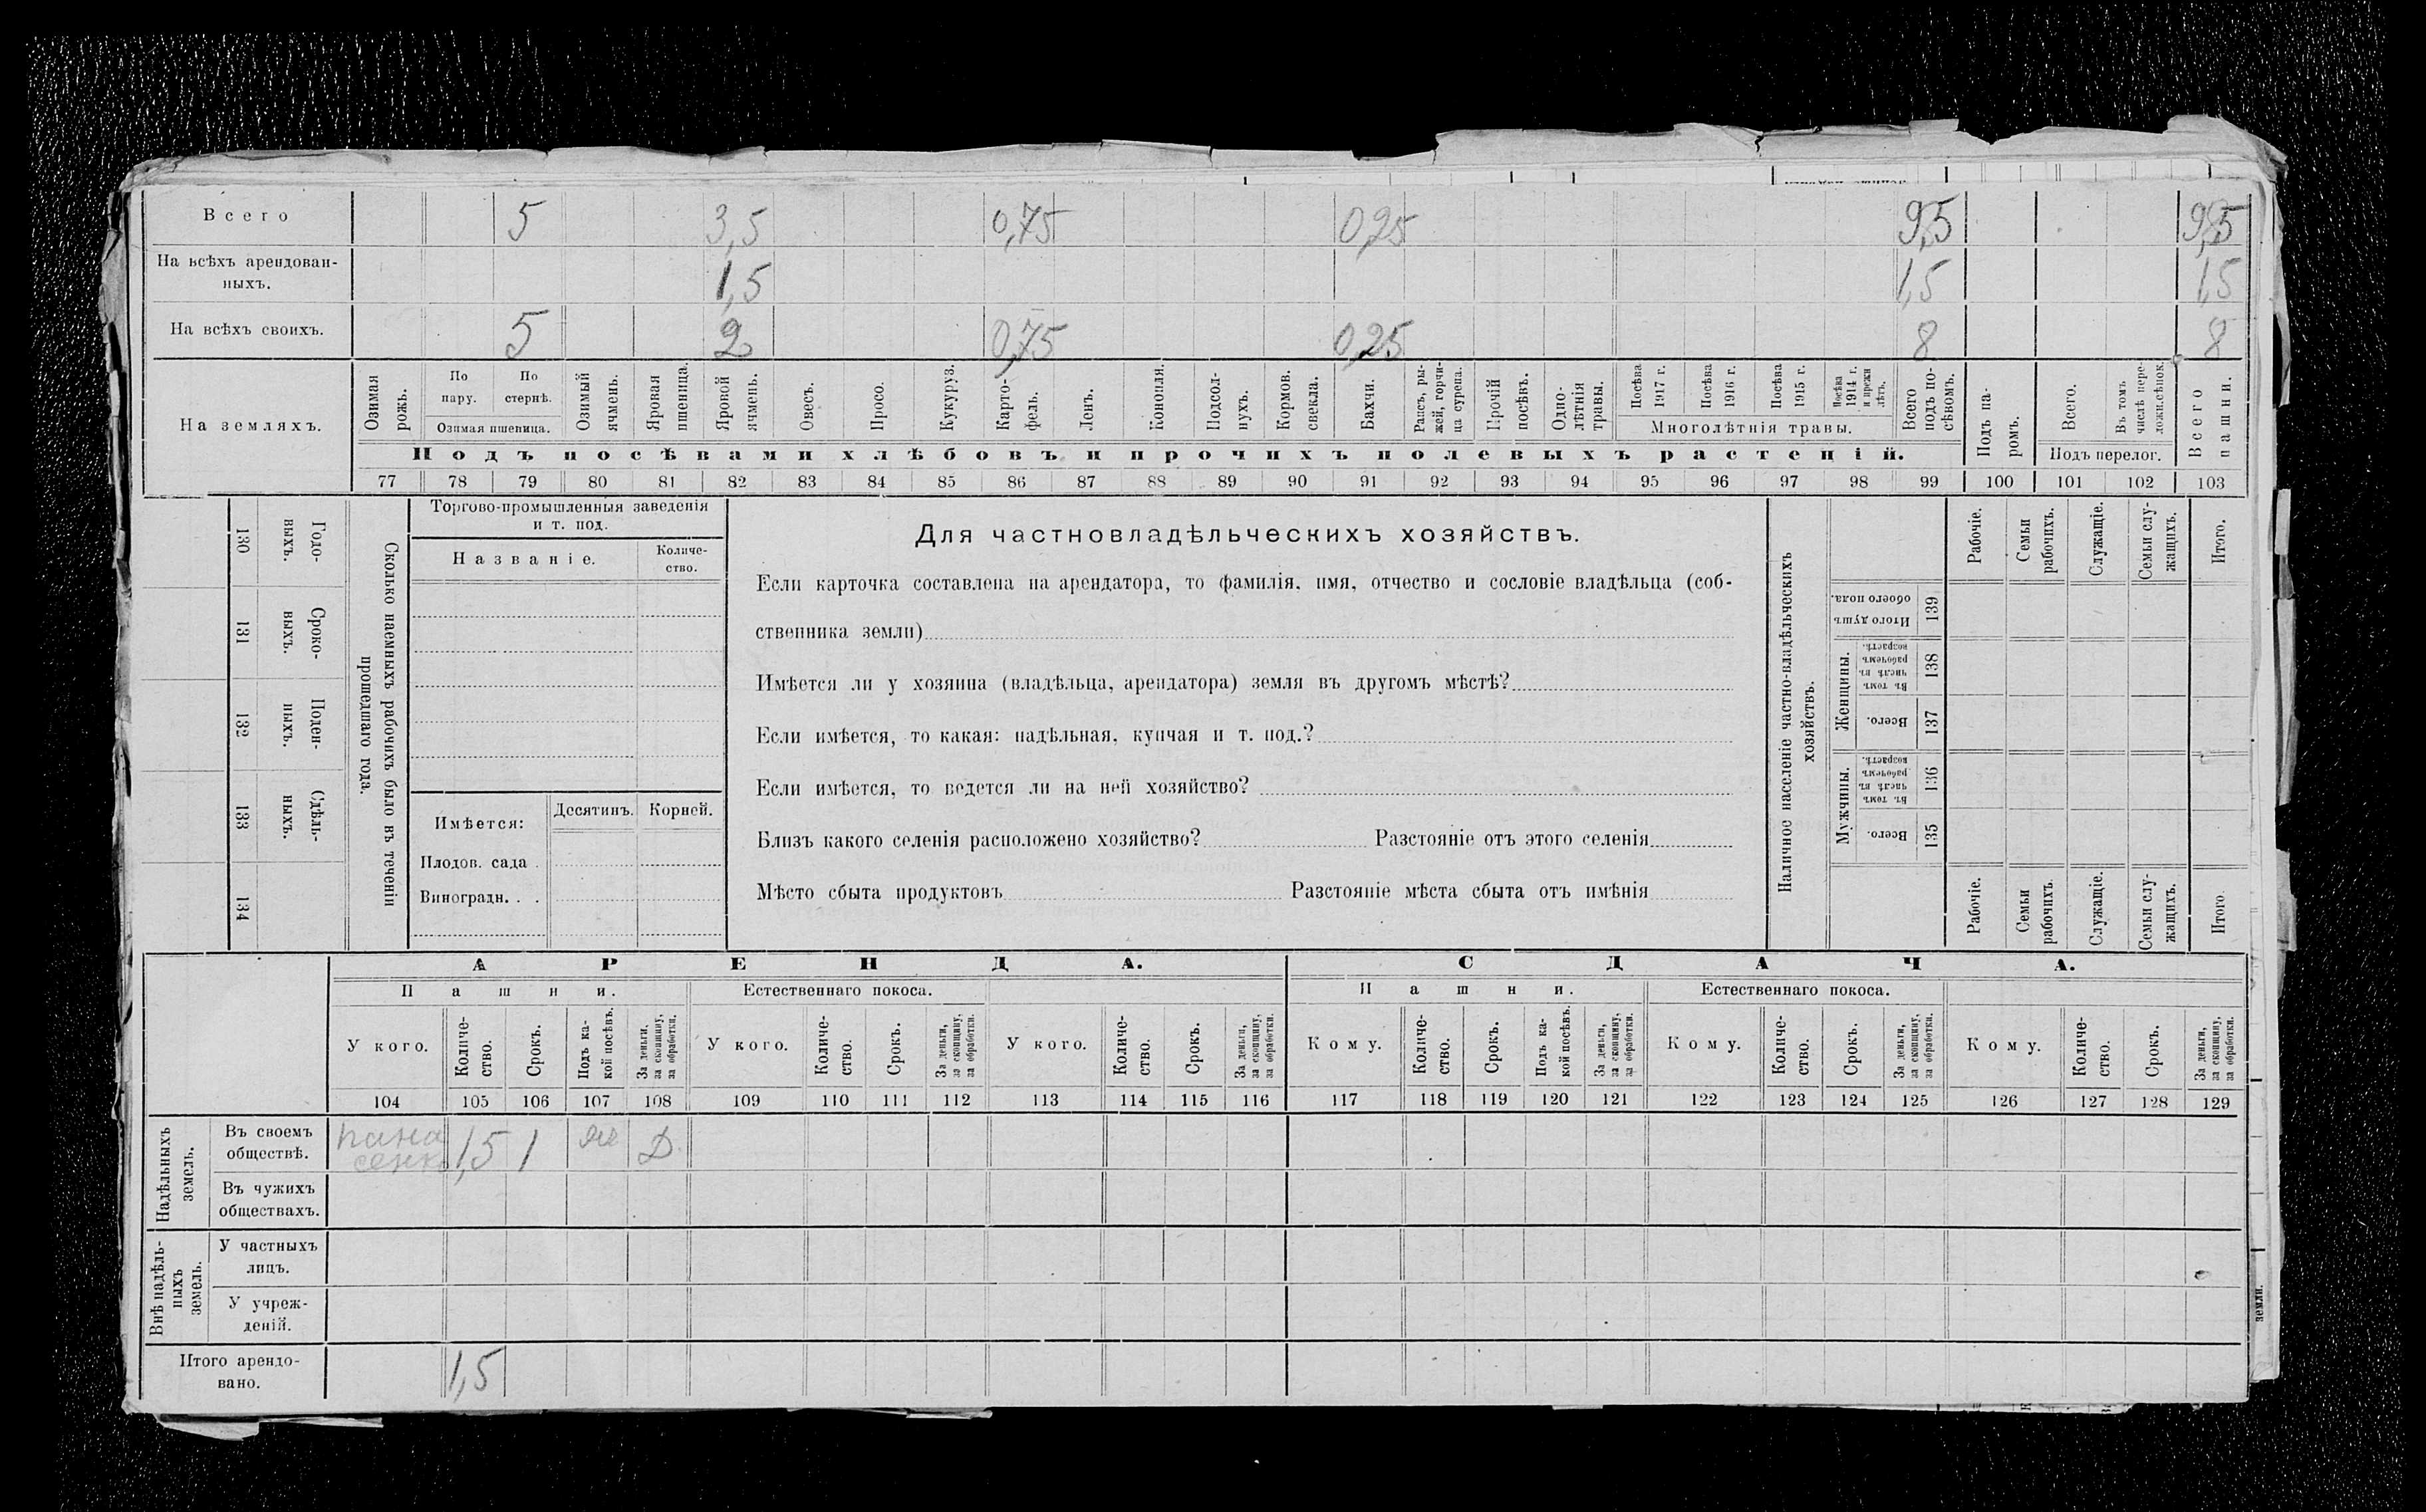 Всего 5 3,5 0,75 0,25 9,5 9,5
На всѣхъ арендован-
ныхъ. 1,5 1,5 1,5
На всѣхъ своихъ. 5 2 0,75 0,25 8 8
На земляхъ.
Озимая
рожь.
По
пару.
По
стернѣ.
Озимая пшеница.
Озимый
ячмень.
Яровая
пшеница.
Яровой
ячмень.
Овесъ.
Просо.
Кукуруз.
Карто-
фель.
Ленъ.
Конопля.
Подсол-
нухъ.
Кормов.
свекла.
Бахчи.
Рапсъ, ры-
жей, горчи-
ца сурепа.
Прочій
посѣвъ.
Одно-
лѣтнія
травы.
Посѣва
1917 г.
Посѣва
1916 г.
Посѣва
1915 г.
Посѣва
1914 г.
и прежн
лѣтъ.
Многолѣтнія травы.
Всего
подъ по-
сѣвомъ.
Подъ па-
ромъ.
Всего.
Въ томъ
числѣ пере-
ложн.сѣнок.
Подъ перелог.
Всего
пашни.
Подъ посѣвами хлѣбовъ и прочихъ полевыхъ растеній.
77 78 79 80 81 82 83 84 85 86 87 88 89 90 91 92 93 94 95 96 97 98 99 100 101 102 103
130 Годо-
выхъ.
131 Сроко-
выхъ.
132 Поден-
ныхъ.
133 Сдѣль-
ныхъ.
134
Сколько наемныхъ рабочихъ было въ теченіи
прошедшаго года.
Торгово-промышленныя заведенія
и т. под.
Названіе.
Количе-
ство.
Имѣется:
Десятинъ.
Корней.
Плодов. сада .
Виноградн. . .
Для частновладѣльческихъ хозяйствъ.
Если карточка составлена на арендатора, то фамилія, имя, отчество и сословіе владѣльца (соб-
ственника земли)
Имѣется ли у хозяина (владѣльца, арендатора) земля въ другомъ мѣстѣ?
Если имѣется, то какая: надѣльная, купчая и т. под.?
Если имѣется, то ведется ли на ней хозяйство?
Близъ какого селенія расположено хозяйство? Разстояніе отъ этого селенія
Мѣсто сбыта продуктовъ Разстояніе мѣста сбыта отъ имѣнія
Наличное населеніе частно-владѣльческихъ
хозяйствъ.
Рабочіе.
Семьи
рабочихъ.
Служащіе.
Семьи слу-
жащихъ.
Итого.
Итого душъ
обоего пола.
139
Женщины.
Въ томъ
числѣ въ
рабочемъ
возрастѣ.
138
Всего.
137
Мужчины.
Въ томъ
числѣ въ
рабочемъ
возрастѣ.
136
Всего.
135
Рабочіе.
Семьи
рабочихъ.
Служащіе.
Семьи слу-
жащихъ.
Итого
АРЕНДА.
СДАЧА.
Пашни.
Естественнаго покоса.
Пашни.
Естественнаго покоса.
У кого.
Количе-
ство.
Срокъ.
Подъ ка-
кой посѣвъ.
За деньги,
за скопщину,
за обработки.
У кого.
Количе-
ство.
Срокъ.
За деньги,
за скопщину,
за обработки.
У кого.
Количе-
ство.
Срокъ.
За деньги,
за скопщину,
за обработки.
Кому.
Количе-
ство.
Срокъ.
Подъ ка-
кой посѣвъ.
За деньги,
за скопщину,
за обработки.
Кому.
Количе-
ство.
Срокъ.
За деньги,
за скопщину,
за обработки.
Кому.
Количе-
ство.
Срокъ.
За деньги,
за скопщину,
за обработки.
104 105 106 107 108 109 110 111 112 113 114 115 116 117 118 119 120 121 122 123 124 125 126 127 128 129
Надѣльныхъ
земель.
Въ своемъ
обществѣ.
пана
сенко 1,5 1 Яч Д.
Въ чужихъ
обществахъ.
Внѣ надѣль-
ныхъ
земель.
У частныхъ
лицъ.
У учреж-
деній.
Итого арендо-
вано. 1,5
земли.